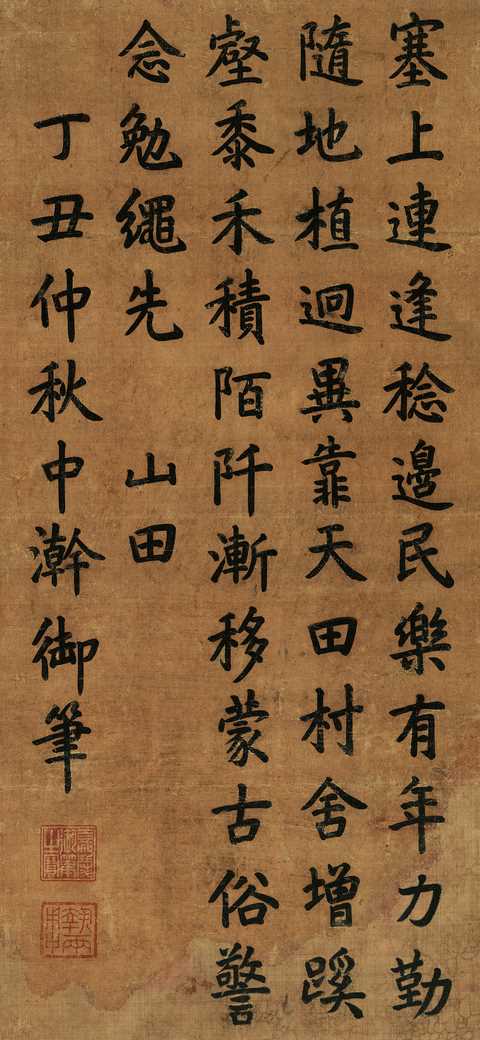 塞上連逢稔邊民樂有年力勤
隨地植逈異靠天田村舍增蹊
壑黍禾積陌阡漸移蒙古俗警
念勉繩先 山田
丁丑仲秋中澣御筆
嘉慶御筆之寶
執兩用中